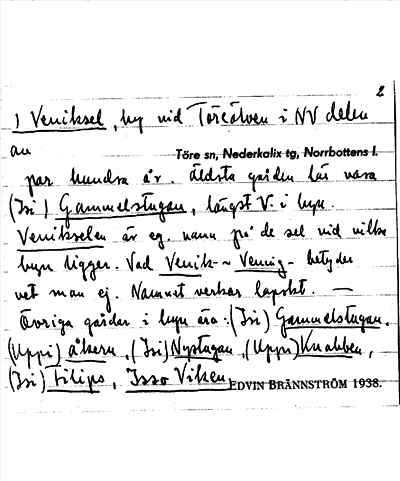 2
) Veniksel, by vid Töreälven i NV delen
av
Töre sn, Nederkalix tg, Norrbottens l.
par hundra år. Äldsta gården lär vara
(Isi) Gammelstugan, längst V. i byn.
Venikselen är eg. namn på de sel vid vilka
byn ligger. Vad Venik- ~ Vennig- betyder
vet man ej. Namnet verkar lapskt. —
Övriga gårdar i byn äro: (Isi) Gammelstugan,
(Uppi) åkern, (Isi) Nystugan, (Uppi) Knabben,
(Isi) Filips, Isso Viken
EDVIN BRÄNNSTRÖM 1938.